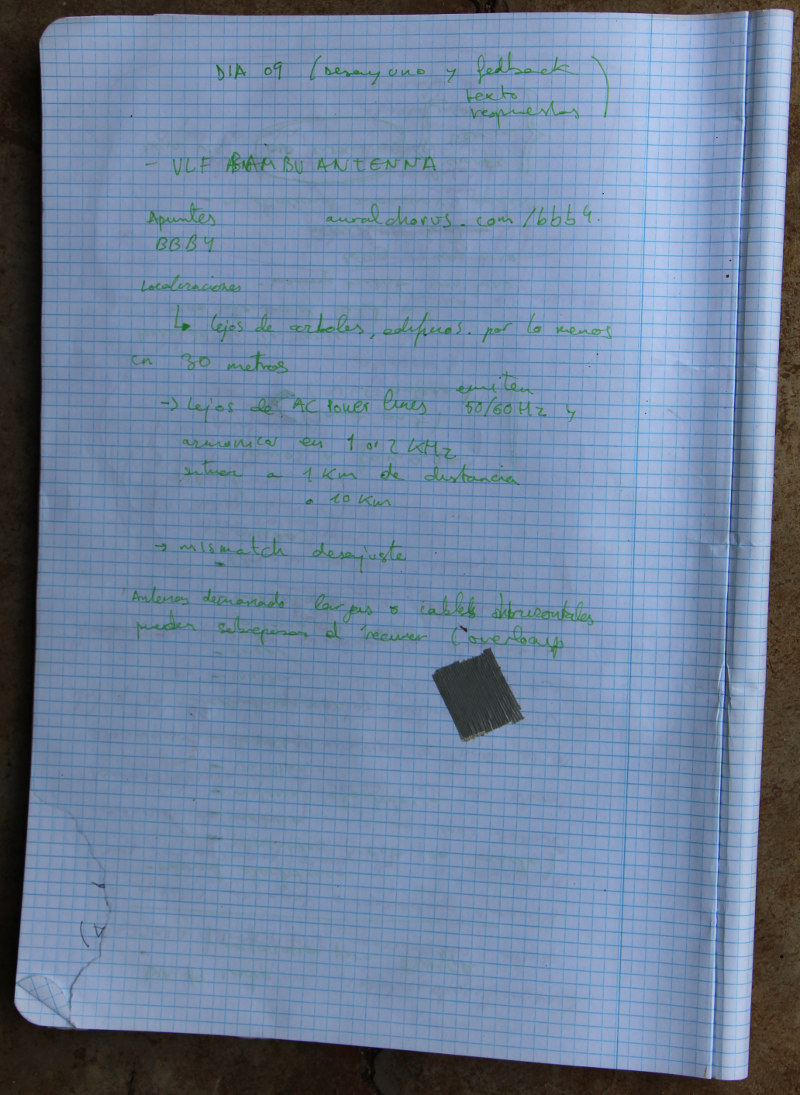 DIA 09 (Desayuno y fedback
texto
respuestas)
- VLF BAMBU ANTENNA
Apuntes auralchorus.com/bbb4.
BBB4
Localizaciones
↳ lejos de arboles, edificios. por lo menos
en 30 metros
→ Lejos de AC Power lines emiten 50/60 Hz y
armonicos en 1 or 2 KHz
situar a 1 Km de distancia
• 10 Km
→ mismatch desajuste
Antenas demasiado largas o cables horizontales
pueden sobrepasar el receiver (